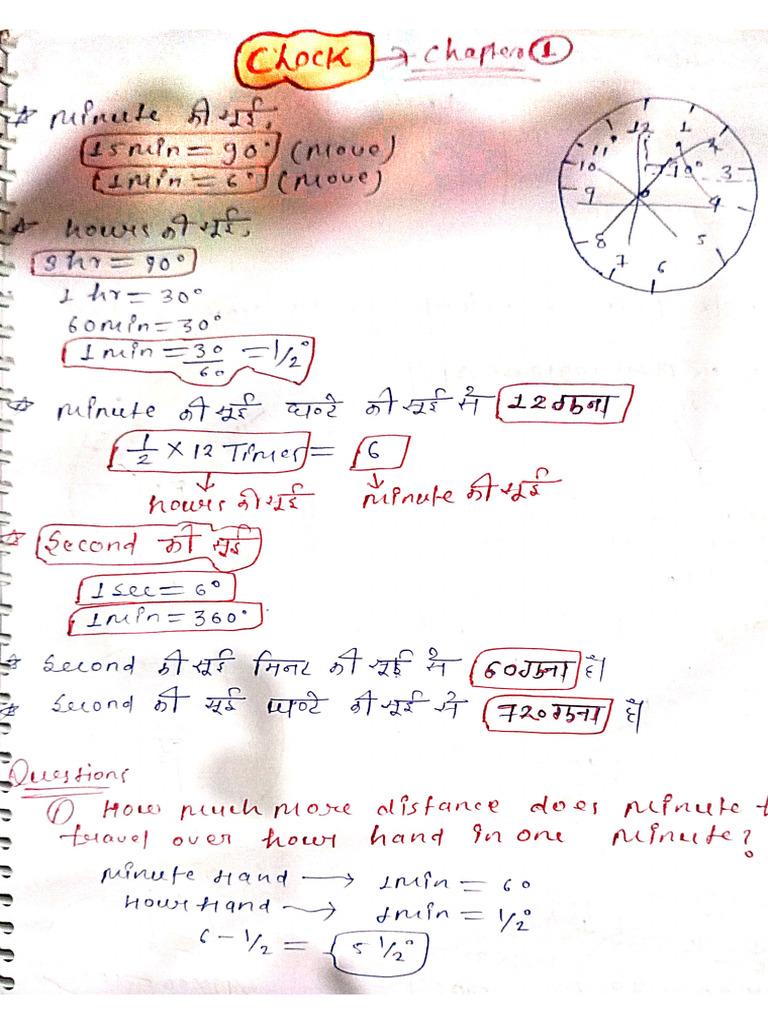 Clock → Chapter ①
☆ Minute की सूई,
15 Min = 90° (Move)
1 Min = 6° (Move)
☆ hours की सूई,
3 hr = 90°
1 hr = 30°
60 Min = 30°
1 Min = 30/60 = 1/2°
☆ Minute की सूई घण्टे की सूई से 12 गुना
1/2 × 12 Times = 6
↓ ↓
hours की सूई Minute की सूई
☆ Second की सूई
1 sec = 6°
1 Min = 360°
☆ Second की सूई मिनट की सूई से 60 गुना है।
☆ Second की सूई घण्टे की सूई से 720 गुना है।
Questions
① How much more distance does Minute
travel over hour hand in one Minute?
Minute Hand → 1 Min = 6°
Hour Hand → 1 Min = 1/2°
6 - 1/2 = 5 1/2°
12 1
11 2
10 10° 3
9 4
8 5
7 6